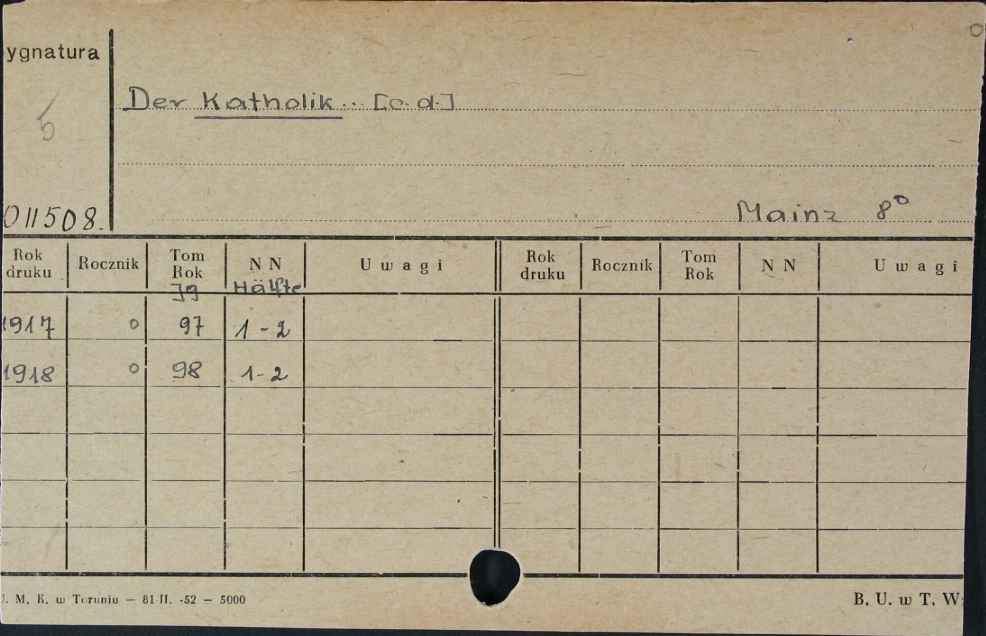 ygnatura
Der Katholik.. [c.d.]
011508.
Mainz 8°
Rok druku Rocznik Tom Rok NN Uwagi Rok druku Rocznik Tom Rok NN Uwagi
Jg Hälfte
1917 0 97 1-2
1918 0 98 1-2
. M. K. w Toruniu — 81 II. -52 — 5000 B. U. w T. W